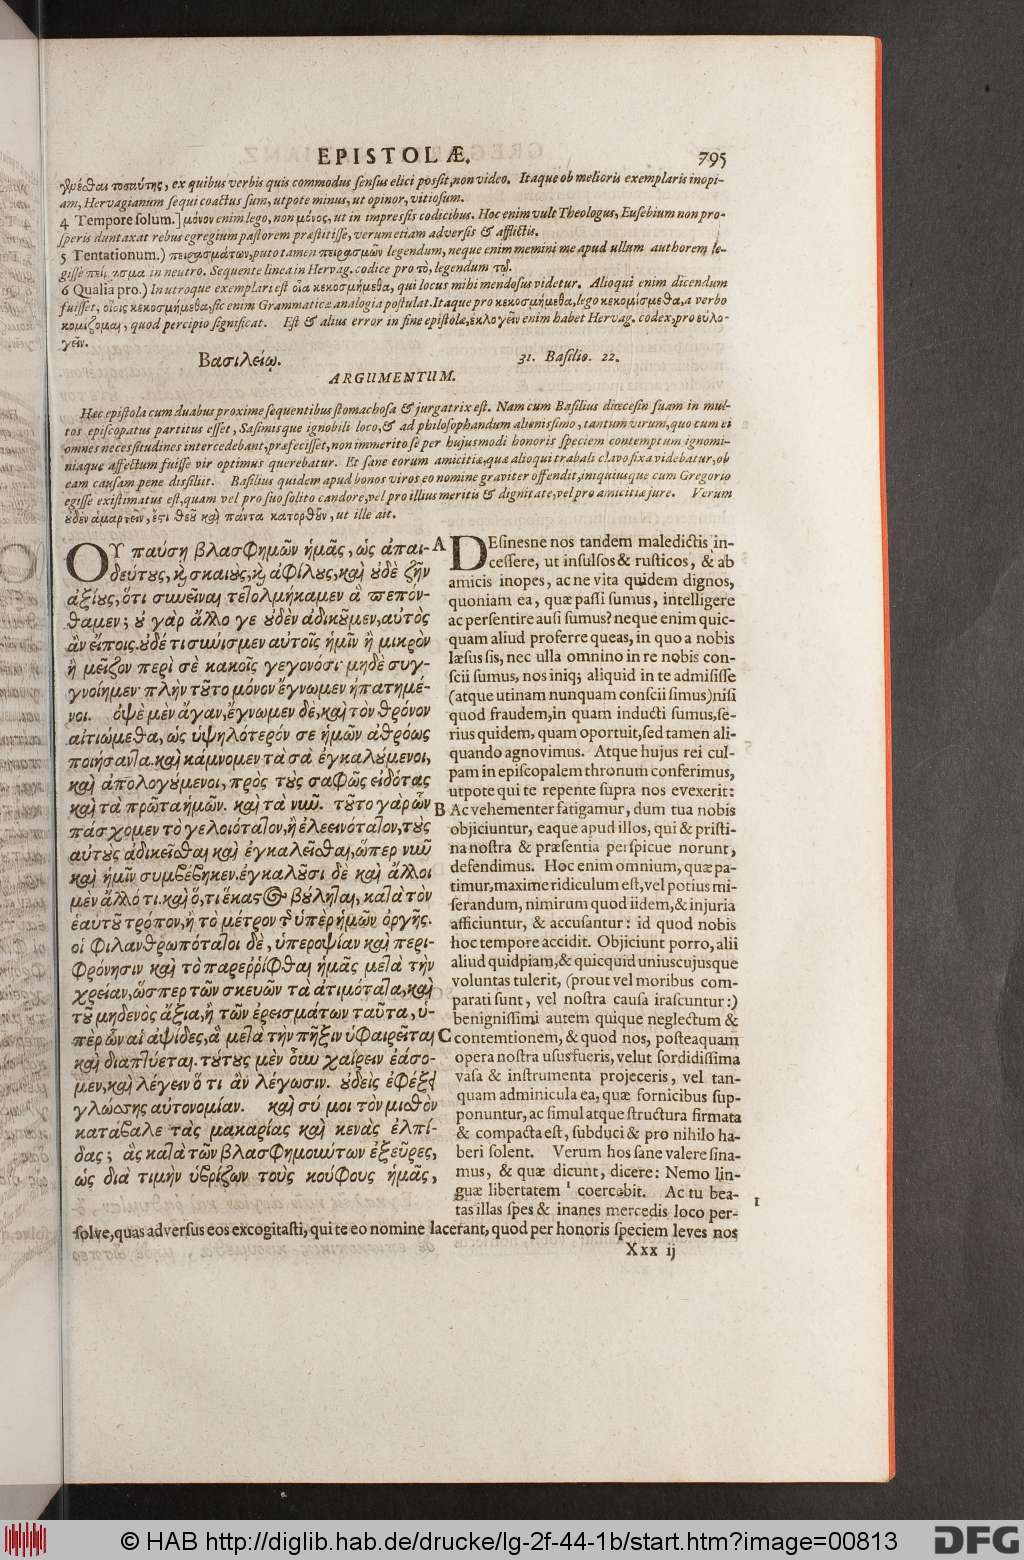 EPISTOLÆ. 795
χρέεσθαι τοιαύτης, ex quibus verbis quis commodus sensus elici possit, non video. Itaque ob melioris exemplaris inopi-
am, Hervagianum sequi coactus sum, utpote minus, ut opinor, vitiosum.
4 Tempore solum.] μόνον enim lego, non μόνος, ut in impressis codicibus. Hoc enim vult Theologus, Eusebium non pro-
speris duntaxat rebus egregium pastorem præstitisse, verum etiam adversis & afflictis.
5 Tentationum.) πειρασμάτων, puto tamen πειρασμῶν legendum, neque enim memini me apud ullum authorem le-
gisse in neutro. Sequente linea in Hervag. codice pro τὸ, legendum τοῦ.
6 Qualia pro.) In utroque exemplari est οἷα κεκοσμήμεθα, qui locus mihi mendosus videtur. Alioqui enim dicendum
fuisset, οἵοις κεκοσμήμεθα, sic enim Grammaticæ analogia postulat. Itaque pro κεκοσμήμεθα, lego κεκομίσμεθα, a verbo
κομίζομαι, quod percipio significat. Est & alius error in fine epistolæ, ἐκλογεῖν enim habet Hervag. codex, pro εὐλο-
γεῖν.
Βασιλείῳ. 31. Basilio. 22.
ARGUMENTUM.
Hæc epistola cum duabus proxime sequentibus stomachosa & jurgatrix est. Nam cum Basilius diœcesin suam in mul-
tos episcopatus partitus esset, Sasimisque ignobili loco, & ad philosophandum alienissimo, tantum virum, quo cum ei
omnes necessitudines intercedebant, præfecisset, non immerito se per hujusmodi honoris speciem contemptum ignomi-
niaque affectum fuisse vir optimus querebatur. Et sane eorum amicitiæ, quæ alioqui trabali clavo fixa videbatur, ob
eam causam pene dissiliit. Basilius quidem apud bonos viros eo nomine graviter offendit, iniquiusque cum Gregorio
egisse existimatus est, quam vel pro suo solito candore, vel pro illius meritis & dignitate, vel pro amicitiæ jure. Verum
οὐδὲν ἁμαρτεῖν, ἐστι θεοῦ καὶ πάντα κατορθοῦν, ut ille ait.
ΟΥ παύση βλασφημῶν ἡμᾶς, ὡς ἀπαι-
δεύτους, καὶ σκαιοὺς, καὶ ἀφίλους, καὶ οὐδὲ ζῆν
ἀξίους, ὅτι συνεῖναι τετολμήκαμεν ἃ πεπόν-
θαμεν; οὐ γὰρ ἄλλο γε οὐδὲν ἀδικοῦμεν, αὐτὸς
ἂν εἴποις. οὐδέ τι σωίσμεν αὐτοῖς ἡμῖν ἢ μικρὸν
ἢ μεῖζον περὶ σὲ κακοῖς γεγονόσι· μηδὲ συγ-
γνοίημεν· πλὴν τοῦτο μόνον ἔγνωμεν ἠπατημέ-
νοι. ὀψὲ μὲν ἄγαν, ἔγνωμεν δὲ, καὶ τὸν θρόνον
αἰτιώμεθα, ὡς ὑψηλότερόν σε ἡμῶν ἀθρόως
ποιήσαντα. καὶ κάμνομεν τὰ σὰ ἐγκαλούμενοι,
καὶ ἀπολογούμενοι, πρὸς τοὺς σαφῶς εἰδότας
καὶ τὰ πρῶτα ἡμῶν. καὶ τὰ νυῦ. τοῦτο γὰρ ὧν
πάσχομεν τὸ γελοιότατον, ἢ ἐλεεινότατον, τοὺς
αὐτοὺς ἀδικεῖσθαι καὶ ἐγκαλεῖσθαι, ὥπερ νυῦ
καὶ ἡμῖν συμβέβηκεν. ἐγκαλοῦσι δὲ καὶ ἄλλοι
μὲν ἄλλό τι. καὶ ὅ, τι ἕκαστος βούληται, κατὰ τὸν
ἑαυτοῦ τρόπον, ἢ τὸ μέτρον τῆς ὑπὲρ ἡμῶν ὀργῆς.
οἱ φιλανθρωπότατοι δὲ, ὑπεροψίαν καὶ περι-
φρόνησιν καὶ τὸ παρεῤῥίφθαι ἡμᾶς μετὰ τὴν
χρείαν, ὥσπερ τῶν σκευῶν τὰ ἀτιμότατα, καὶ
τοῦ μηδενὸς ἄξια, ἢ τῶν ἐρεισμάτων ταῦτα, ὑ-
πὲρ ὧν αἱ ἀψίδες, ἃ μετὰ τὴν πῆξιν ὑφαιρεῖται
καὶ διαπτύεται. τούτους μὲν οὖν χαίρειν ἐάσο-
μεν, καὶ λέγειν ὅ τι ἂν λέγωσιν. οὐδεὶς ἐφέξει
γλώσσης αὐτονομίαν. καὶ σύ μοι τὸν μισθὸν
κατάβαλε τὰς μακαρίας καὶ κενὰς ἐλπί-
δας; ἃς κατὰ τῶν βλασφημούντων ἐξεῦρες,
ὡς διὰ τιμὴν ὑβρίζων τοὺς κούφους ἡμᾶς,
A DEsinesne nos tandem maledictis in-
cessere, ut insulsos & rusticos, & ab
amicis inopes, ac ne vita quidem dignos,
quoniam ea, quæ passi sumus, intelligere
ac persentire ausi sumus? neque enim quic-
quam aliud proferre queas, in quo a nobis
læsus sis, nec ulla omnino in re nobis con-
scii sumus, nos iniq; aliquid in te admisisse
(atque utinam nunquam conscii simus) nisi
quod fraudem, in quam inducti sumus, se-
rius quidem, quam oportuit, sed tamen ali-
quando agnovimus. Atque hujus rei cul-
pam in episcopalem thronum conferimus,
utpote qui te repente supra nos evexerit:
B Ac vehementer fatigamur, dum tua nobis
objiciuntur, eaque apud illos, qui & pristi-
na nostra & præsentia perspicue norunt,
defendimus. Hoc enim omnium, quæ pa-
timur, maxime ridiculum est, vel potius mi-
serandum, nimirum quod iidem, & injuria
afficiuntur, & accusantur: id quod nobis
hoc tempore accidit. Objiciunt porro, alii
aliud quidpiam, & quicquid uniuscujusque
voluntas tulerit, (prout vel moribus com-
parati sunt, vel nostra causa irascuntur:)
benignissimi autem quique neglectum &
C contemtionem, & quod nos, posteaquam
opera nostra usus fueris, velut sordidissima
vasa & instrumenta projeceris, vel tan-
quam adminicula ea, quæ fornicibus sup-
ponuntur, ac simul atque structura firmata
& compacta est, subduci & pro nihilo ha-
beri solent. Verum hos sane valere sina-
mus, & quæ dicunt, dicere: Nemo lin-
guæ libertatem 1 coercebit. Ac tu bea-
tas illas spes & inanes mercedis loco per-
1
solve, quas adversus eos excogitasti, qui te eo nomine lacerant, quod per honoris speciem leves nos
Xxx ij
© HAB http://diglib.hab.de/drucke/lg-2f-44-1b/start.htm?image=00813
DFG